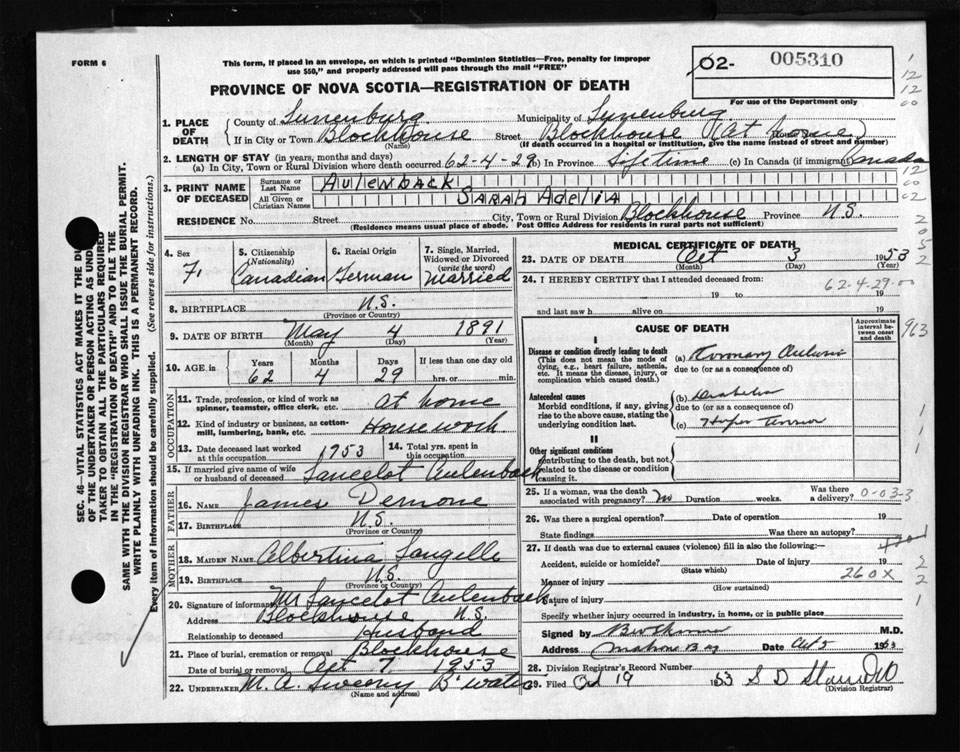 FORM 6
This form, if placed in an envelope, on which is printed "Dominion Statistics—Free, penalty for improper
use $50," and properly addressed will pass through the mail "FREE"
02- 005310
For use of the Department only
PROVINCE OF NOVA SCOTIA—REGISTRATION OF DEATH
1. PLACE OF DEATH
County of Lunenburg Municipality of Lunenburg
If in City or Town Blockhouse Street Blockhouse (At home)
(Name) (If death occurred in a hospital or institution, give the name instead of street and number)
2. LENGTH OF STAY (in years, months and days)
(a) In City, Town or Rural Division where death occurred 62-4-29 (b) In Province Lifetime (c) In Canada (if immigrant) Canada
3. PRINT NAME OF DECEASED
Surname or Last Name AULENBACK
All Given or Christian Names SARAH ADELIA
RESIDENCE No. Street City, Town or Rural Division Blockhouse Province N.S.
(Residence means usual place of abode. Post Office Address for residents in rural parts not sufficient)
4. Sex F.
5. Citizenship (Nationality) Canadian
6. Racial Origin German
7. Single, Married, Widowed or Divorced (write the word) Married
8. BIRTHPLACE N.S.
(Province or Country)
9. DATE OF BIRTH May 4 1891
(Month) (Day) (Year)
10. AGE in Years 62 Months 4 Days 29 If less than one day old hrs. or min.
OCCUPATION
11. Trade, profession, or kind of work as spinner, teamster, office clerk, etc. At home
12. Kind of industry or business, as cotton-mill, lumbering, bank, etc. Housework
13. Date deceased last worked at this occupation 1953
14. Total yrs. spent in this occupation
15. If married give name of wife or husband of deceased Lancelot Aulenback
FATHER
16. NAME James Demone
17. BIRTHPLACE N.S.
(Province or Country)
MOTHER
18. MAIDEN NAME Albertina Langille
19. BIRTHPLACE N.S.
(Province or Country)
20. Signature of informant Mr Lancelot Aulenback
Address Blockhouse N.S.
Relationship to deceased Husband
21. Place of burial, cremation or removal Blockhouse
Date of burial or removal Oct 7 1953
22. UNDERTAKER M. A. Sweeny B'water
(Name and address)
MEDICAL CERTIFICATE OF DEATH
23. DATE OF DEATH Oct 3 1953
(Month) (Day) (Year)
24. I HEREBY CERTIFY that I attended deceased from: 62-4-29-00
19 to 19
and last saw h alive on 19
CAUSE OF DEATH
Approximate interval between onset and death
I
Disease or condition directly leading to death
(This does not mean the mode of dying, e.g., heart failure, asthenia, etc. It means the disease, injury, or complication which caused death.)
(a)
due to (or as a consequence of)
Antecedent causes
Morbid conditions, if any, giving rise to the above cause, stating the underlying condition last.
(b) Diabetes
due to (or as a consequence of)
(c)
II
Other significant conditions
contributing to the death, but not related to the disease or condition causing it.
963
25. If a woman, was the death associated with pregnancy? No Duration weeks. Was there a delivery? 0-03-3
26. Was there a surgical operation? Date of operation 19
State findings Was there an autopsy?
27. If death was due to external causes (violence) fill in also the following:—
Accident, suicide or homicide? Date of injury 19
(State which)
Manner of injury 260X
(How sustained)
Nature of injury
Specify whether injury occurred in industry, in home, or in public place
Signed by M.D.
Address Mahone Bay Date Oct 5 1953
28. Division Registrar's Record Number
29. Filed Oct 19 1953 S D
(Division Registrar)
SEC. 46—VITAL STATISTICS ACT MAKES IT THE DUTY
OF THE UNDERTAKER OR PERSON ACTING AS UNDER-
TAKER TO OBTAIN ALL THE PARTICULARS REQUIRED
IN THE "REGISTRATION OF DEATH" AND TO FILE THE
SAME WITH THE DIVISION REGISTRAR WHO SHALL ISSUE THE BURIAL PERMIT.
WRITE PLAINLY WITH UNFADING INK. THIS IS A PERMANENT RECORD.
Every item of information should be carefully supplied. (See reverse side for instructions.)